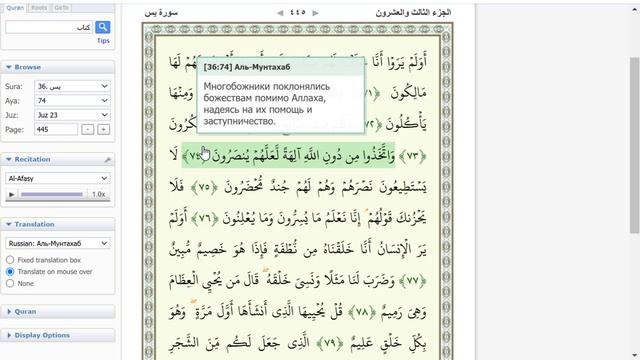 Quran
Root
GoTo
كتاب
Tips
Browse
Sura: 36. يس
Aya: 74
Juz: Juz 23
Page: 445
Recitation
Al-Afasy
1.0x
Translation
Russian: Аль-Мунтахаб
Fixed translation box
Translate on mouse over
None
Quran
Display Options
سورة يس
٤٤٥
الجزء الثالث والعشرون
[36:74] Аль-Мунтахаб
Многобожники поклонялись
божествам помимо Аллаха,
надеясь на их помощь и
заступничество.
أَوَلَمْ يَرَوْا أَنَّا لَهُمْ لَهَا
مَالِكُونَ ﴿٧١﴾ وَمِنْهَا
يَأْكُلُونَ ﴿٧٢﴾
﴿٧٣﴾ وَاتَّخَذُوا مِن دُونِ اللَّهِ آلِهَةً لَّعَلَّهُمْ يُنصَرُونَ ﴿٧٤﴾ لَا
يَسْتَطِيعُونَ نَصْرَهُمْ وَهُمْ لَهُمْ جُندٌ مُّحْضَرُونَ ﴿٧٥﴾ فَلَا
يَحْزُنكَ قَوْلُهُمْ ۘ إِنَّا نَعْلَمُ مَا يُسِرُّونَ وَمَا يُعْلِنُونَ ﴿٧٦﴾ أَوَلَمْ
يَرَ الْإِنسَانُ أَنَّا خَلَقْنَاهُ مِن نُّطْفَةٍ فَإِذَا هُوَ خَصِيمٌ مُّبِينٌ
﴿٧٧﴾ وَضَرَبَ لَنَا مَثَلًا وَنَسِيَ خَلْقَهُ ۖ قَالَ مَن يُحْيِي الْعِظَامَ
وَهِيَ رَمِيمٌ ﴿٧٨﴾ قُلْ يُحْيِيهَا الَّذِي أَنشَأَهَا أَوَّلَ مَرَّةٍ ۖ وَهُوَ
بِكُلِّ خَلْقٍ عَلِيمٌ ﴿٧٩﴾ الَّذِي جَعَلَ لَكُم مِّنَ الشَّجَرِ